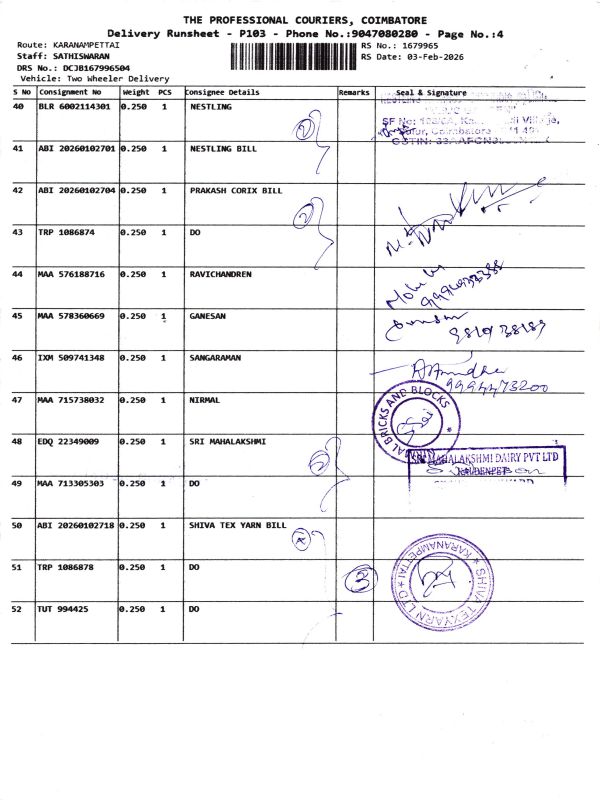 THE PROFESSIONAL COURIERS, COIMBATORE
Delivery Runsheet - P103 - Phone No.:9047080280 - Page No.:4
Route: KARANAMPETTAI RS No.: 1679965
Staff: SATHISWARAN RS Date: 03-Feb-2026
DRS No.: DCJB167996504
Vehicle: Two Wheeler Delivery
S No Consignment No Weight PCS Consignee Details Remarks Seal & Signature
40 BLR 6002114301 0.250 1 NESTLING
2
41 ABI 20260102701 0.250 1 NESTLING BILL
42 ABI 20260102704 0.250 1 PRAKASH CORIX BILL
2
43 TRP 1086874 0.250 1 DO
44 MAA 576188716 0.250 1 RAVICHANDREN
45 MAA 578360669 0.250 1 GANESAN
46 IXM 509741348 0.250 1 SANGARAMAN
9994473200
47 MAA 715738032 0.250 1 NIRMAL
BRICKS AND BLOCKS
48 EDQ 22349009 0.250 1 SRI MAHALAKSHMI
2
SRI MAHALAKSHMI DAIRY PVT LTD
49 MAA 713305303 0.250 1 DO
50 ABI 20260102718 0.250 1 SHIVA TEX YARN BILL
51 TRP 1086878 0.250 1 DO
3
SHIVA TEXYARN LTD * KARANAMPETTAI *
52 TUT 994425 0.250 1 DO